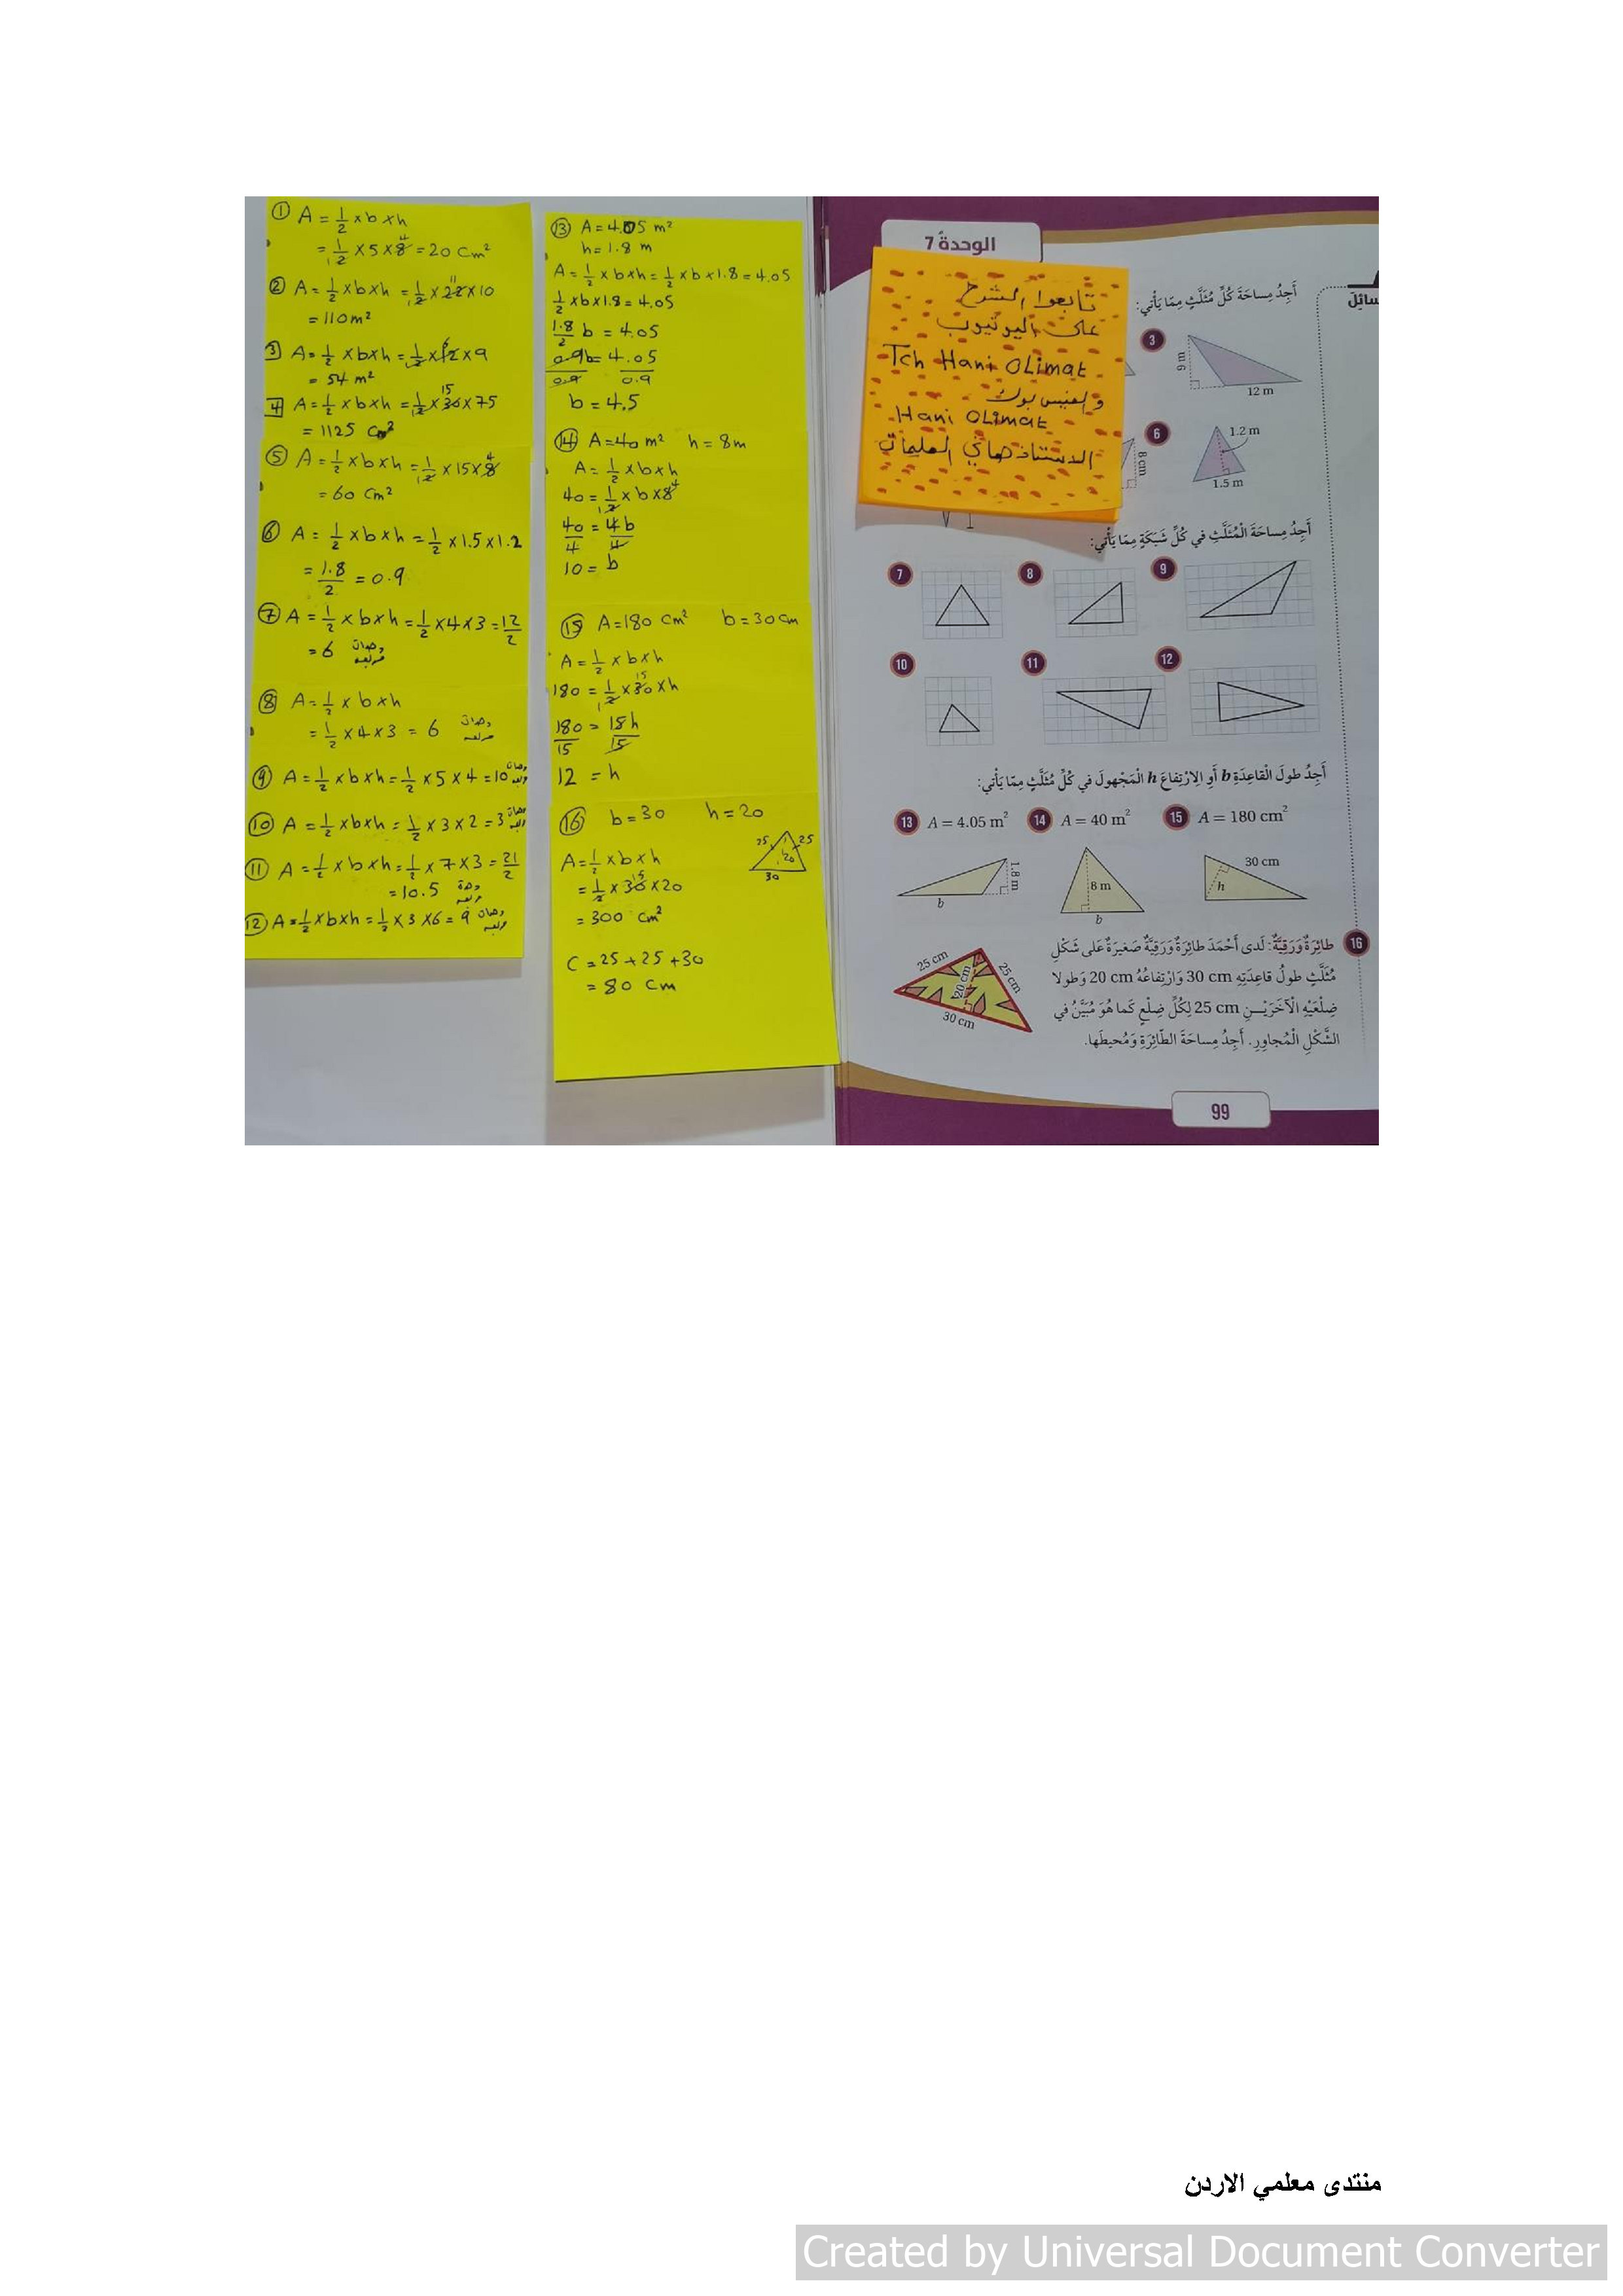 ① A = 1/2 × b × h
= 1/2 × 5 × 8 4 = 20 Cm²
② A = 1/2 × b × h = 1/2 × 22 11 × 10
= 110 m²
③ A = 1/2 × b × h = 1/2 × 12 6 × 9
= 54 m²
4 A = 1/2 × b × h = 1/2 × 30 15 × 75
= 1125 Cm²
⑤ A = 1/2 × b × h = 1/2 × 15 × 8 4
= 60 Cm²
⑥ A = 1/2 × b × h = 1/2 × 1.5 × 1.2
= 1.8/2 = 0.9
⑦ A = 1/2 × b × h = 1/2 × 4 × 3 = 12/2
= 6 وحدات مربعة
⑧ A = 1/2 × b × h
= 1/2 × 4 × 3 = 6 وحدات مربعة
⑨ A = 1/2 × b × h = 1/2 × 5 × 4 = 10 وحدات مربعة
⑩ A = 1/2 × b × h = 1/2 × 3 × 2 = 3 وحدات مربعة
⑪ A = 1/2 × b × h = 1/2 × 7 × 3 = 21/2
= 10.5 وحدة مربعة
⑫ A = 1/2 × b × h = 1/2 × 3 × 6 = 9 وحدات مربعة
⑬ A = 4.05 m²
h = 1.8 m
A = 1/2 × b × h = 1/2 × b × 1.8 = 4.05
1/2 × b × 1.8 = 4.05
1.8/2 b = 4.05
0.9b/0.9 = 4.05/0.9
b = 4.5
⑭ A = 40 m² h = 8m
A = 1/2 × b × h
40 = 1/2 × b × 8 4
40/4 = 4b/4
10 = b
⑮ A = 180 cm² b = 30 cm
A = 1/2 × b × h
180 = 1/2 × 30 15 × h
180/15 = 15h/15
12 = h
⑯ b = 30 h = 20
25 25
20
30
A = 1/2 × b × h
= 1/2 × 30 15 × 20
= 300 cm²
C = 25 + 25 + 30
= 80 cm
الوحدة 7
تابعوا الشرح
على اليوتيوب
Tch Hani OLimat
والفيس بوك
Hani OLimat
الاستاذ هاني العليمات
أَجِدُ مِساحَةَ كُلِّ مُثَلَّثٍ مِمّا يَأْتي:
3
9 m
12 m
6
1.2 m
8 cm
1.5 m
أَجِدُ مِساحَةَ الْمُثَلَّثِ في كُلِّ شَبَكَةٍ مِمّا يَأْتي:
7 8 9
10 11 12
أَجِدُ طولَ الْقاعِدَةِ b أَوِ الِارْتِفاعَ h الْمَجْهولَ في كُلِّ مُثَلَّثٍ مِمّا يَأْتي:
13 A = 4.05 m² 14 A = 40 m² 15 A = 180 cm²
1.8 m b
8 m b
30 cm h
16 طائِرَةٌ وَرَقِيَّةٌ: لَدى أَحْمَدَ طائِرَةٌ وَرَقِيَّةٌ صَغيرَةٌ عَلى شَكْلِ
مُثَلَّثٍ طولُ قاعِدَتِهِ 30 cm وَارْتِفاعُهُ 20 cm وَطولا
ضِلْعَيْهِ الْآخَرَيْنِ 25 cm لِكُلِّ ضِلْعٍ كَما هُوَ مُبَيَّنٌ في
الشَّكْلِ الْمُجاوِرِ. أَجِدُ مِساحَةَ الطّائِرَةِ وَمُحيطَها.
25 cm 25 cm
20 cm
30 cm
99
منتدى معلمي الاردن
Created by Universal Document Converter